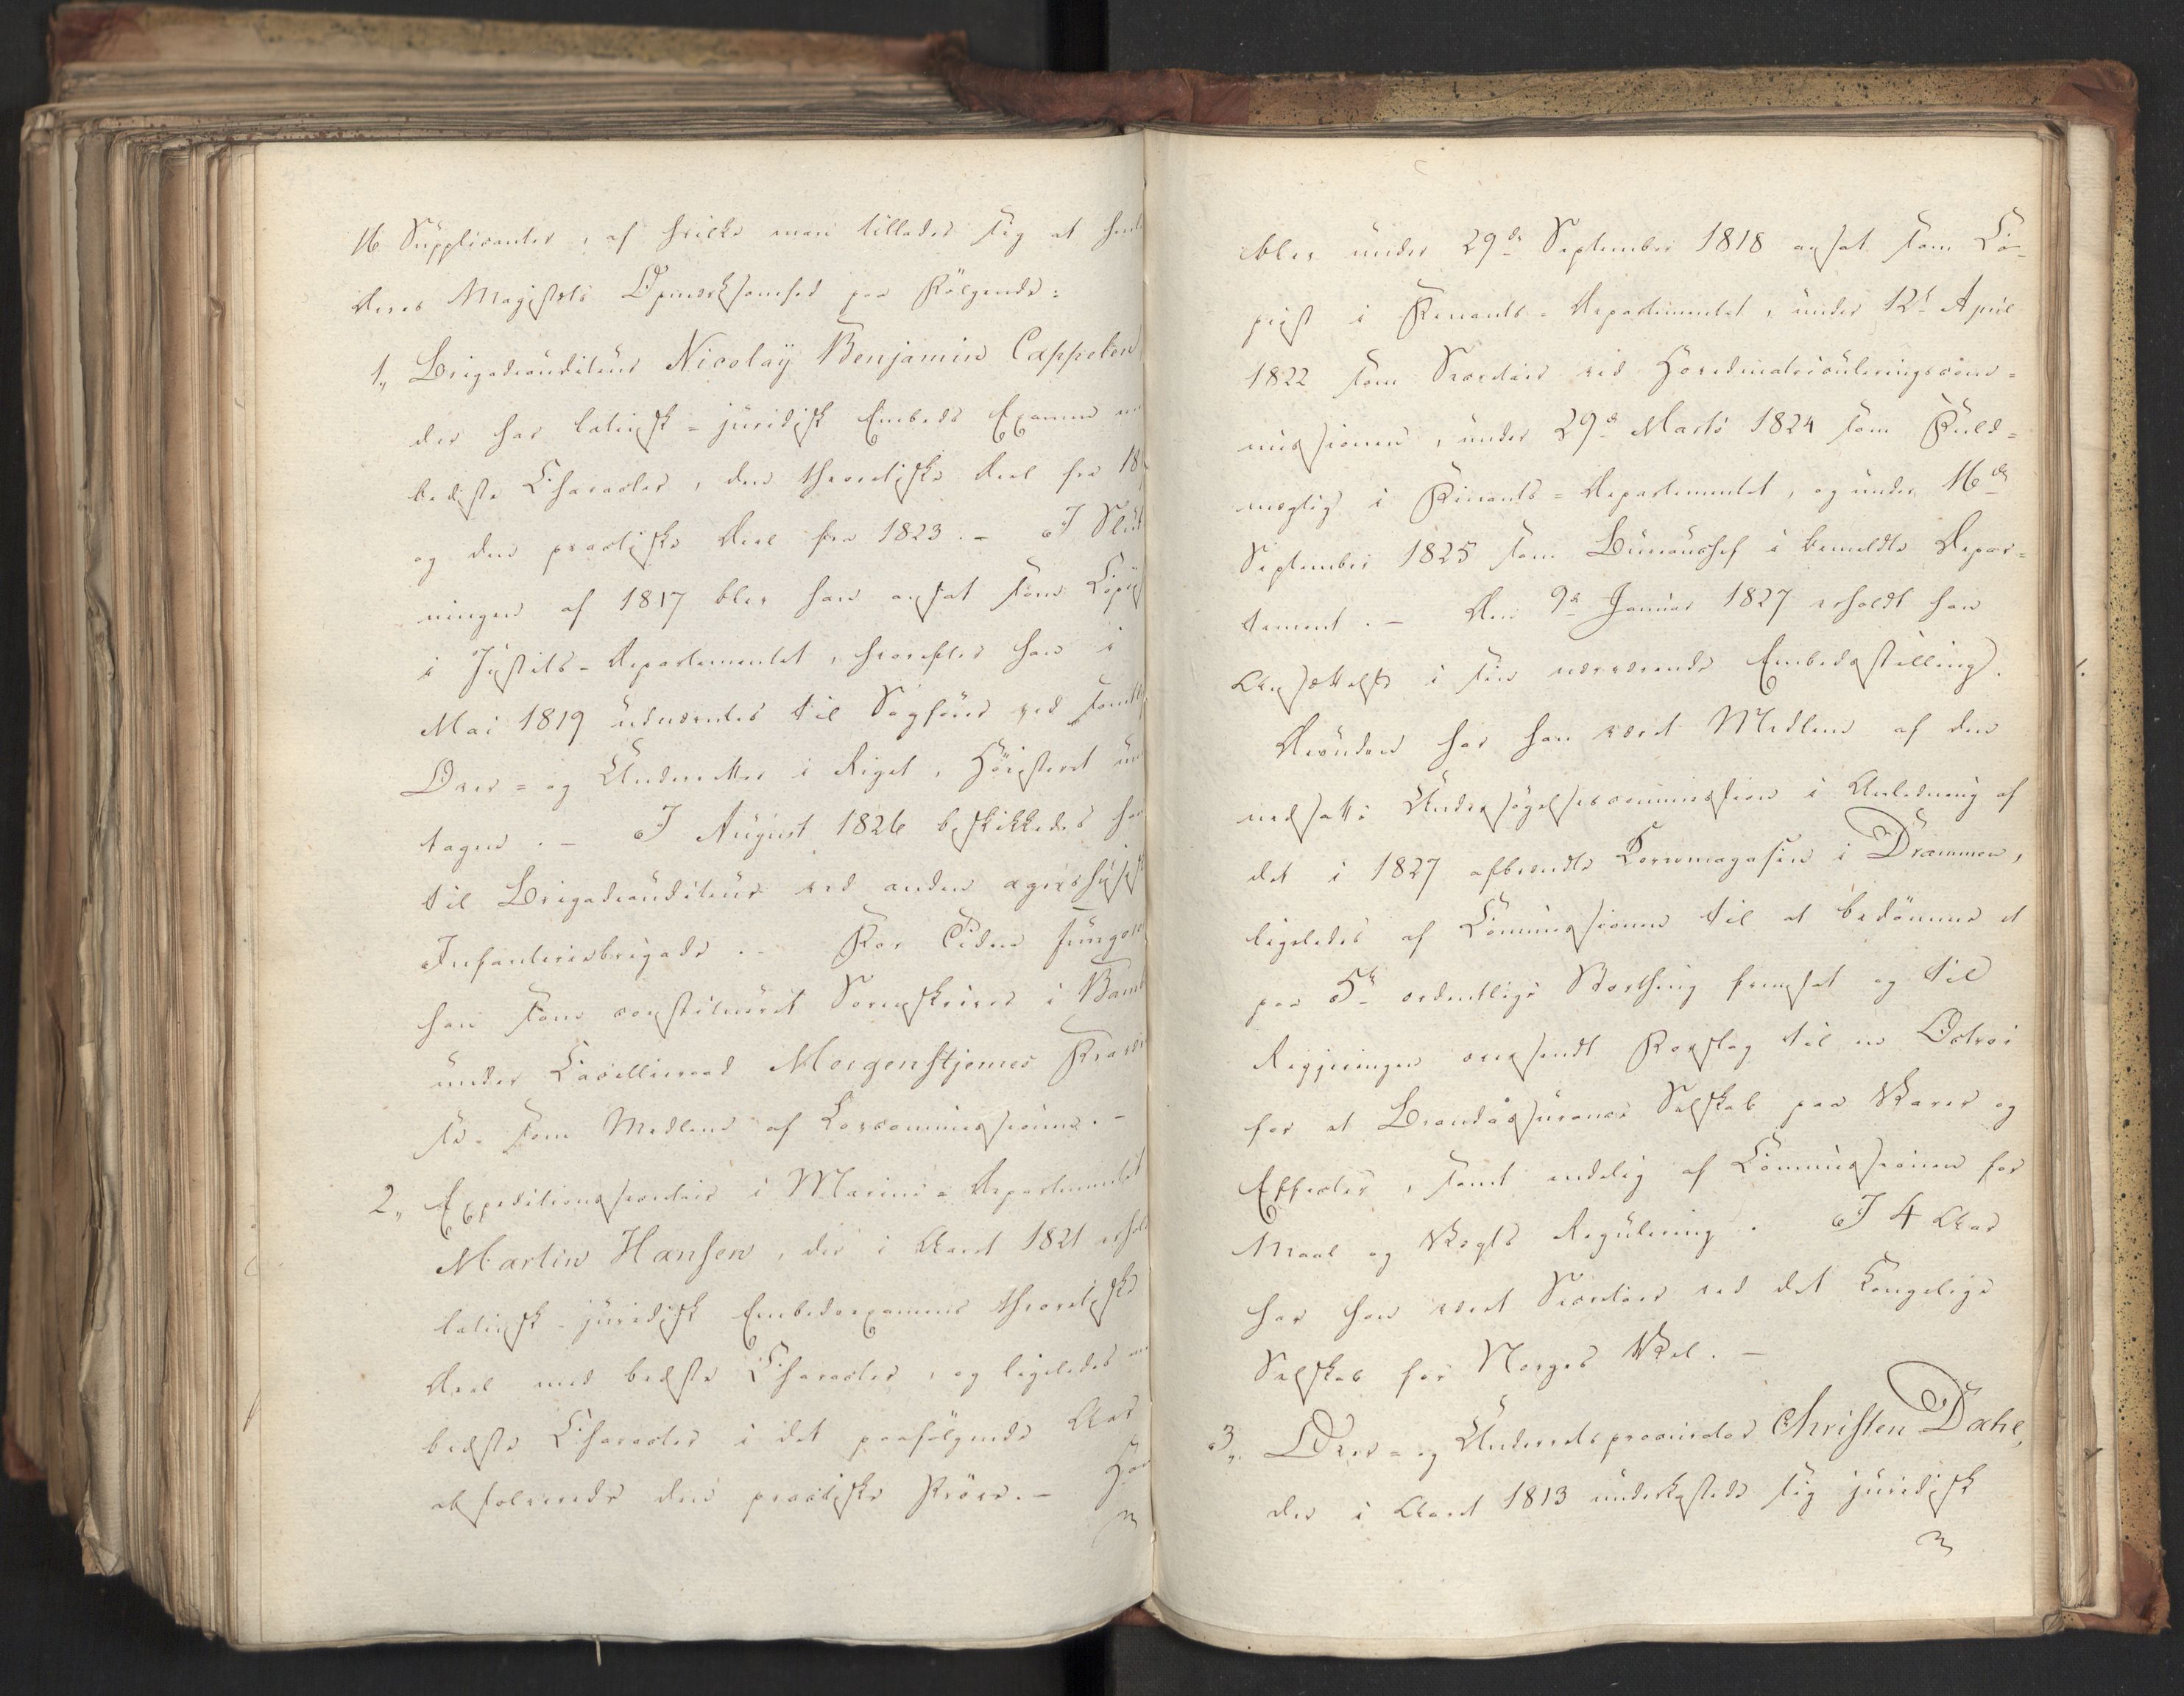 16 Supplicanter, af hvilke man tillader sig at hen
Deres Majestets Opmærksomhed paa Følgende:
1,, Brigadeauditeur Nicolaÿ Benjamin Cappelen
der har latinsk-juridisk Embeds Examen m
bedste Character, den theoretiske Deel fra 18
og den practiske Deel fra 1823. – I Slut
ningen af 1817 blev han ansat som Copiis
i Justits-Departementet, hvorefter han i
Mai 1819 udnævntes til Sagfører ved samtl
Over- og Underretter i Riget, Höiesteret un
tagen. – I August 1826 beskikkedes ha
til Brigadeauditeur ved anden agershusisk
Infanteriebrigade. – For Tiden fungere
han som constitueret Sorenskriver i Bamb
under Cancelliraad Morgenstjernes Fravær
se som Medlem af Lovcommissionen. –
2,, Expeditionssecretair i Marine-Departementet
Martin Hansen, der i Aaret 1821 erhol
latinsk-juridisk Embedsexamens theoretiske
Deel med bedste Character, og ligeledes m
bedste Character i det paafölgende Aar
absolverede den practiske Pröve. – Han
blev under 29de September 1818 ansat som Co-
piist i Finants-Departementet, under 12t April
1822 som Secretair ved Hovedmatriculeringscom-
missionen, under 29de Marts 1824 som Fuld-
mægtig i Finants-Departementet, og under 16de
September 1825 som Bureauchef i bemeldte Depar-
tement. – Den 9de Januar 1827 erholdt han
Ansættelse i sin nærværende Embedsstilling.
Desuden har han været Medlem af den
nedsatte Undersögelsescommission i Anledning af
det i 1827 afbrændte Kornmagasin i Drammen,
ligeledes af Commissionen til at bedömme et
paa 5te ordentlige Storthing fremsat og til
Regjeringen oversendt Forslag til en Octroi
for et Brandassurance Selskab paa Varer og
Effecter, samt endelig af Commissionen for
Maal og Vægts Regulering. I 4 Aar
har han været Secretair ved det Kongelige
Selskab for Norges Vel. –
3,, Over- og Underretsprocurator Christen Dahl,
der i Aaret 1813 underkastede sig juridisk